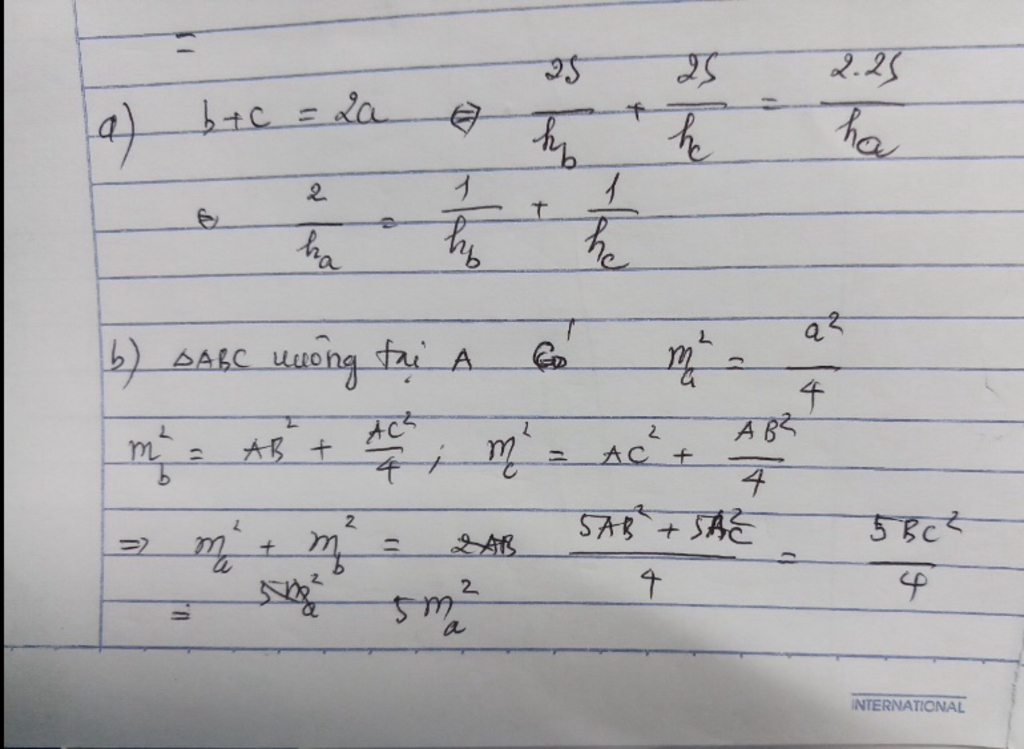 =
a) b+c = 2a ⇔ 2S/h_b + 2S/h_c = 2.2S/h_a
⇔ 2/h_a = 1/h_b + 1/h_c
b) △ABC vuông tại A có m_a² = a²/4
m_b² = AB² + AC²/4 ; m_c² = AC² + AB²/4
⇒ m_a² + m_b² = (5AB² + 5AC²)/4 = 5BC²/4
= 5m_a²
INTERNATIONAL